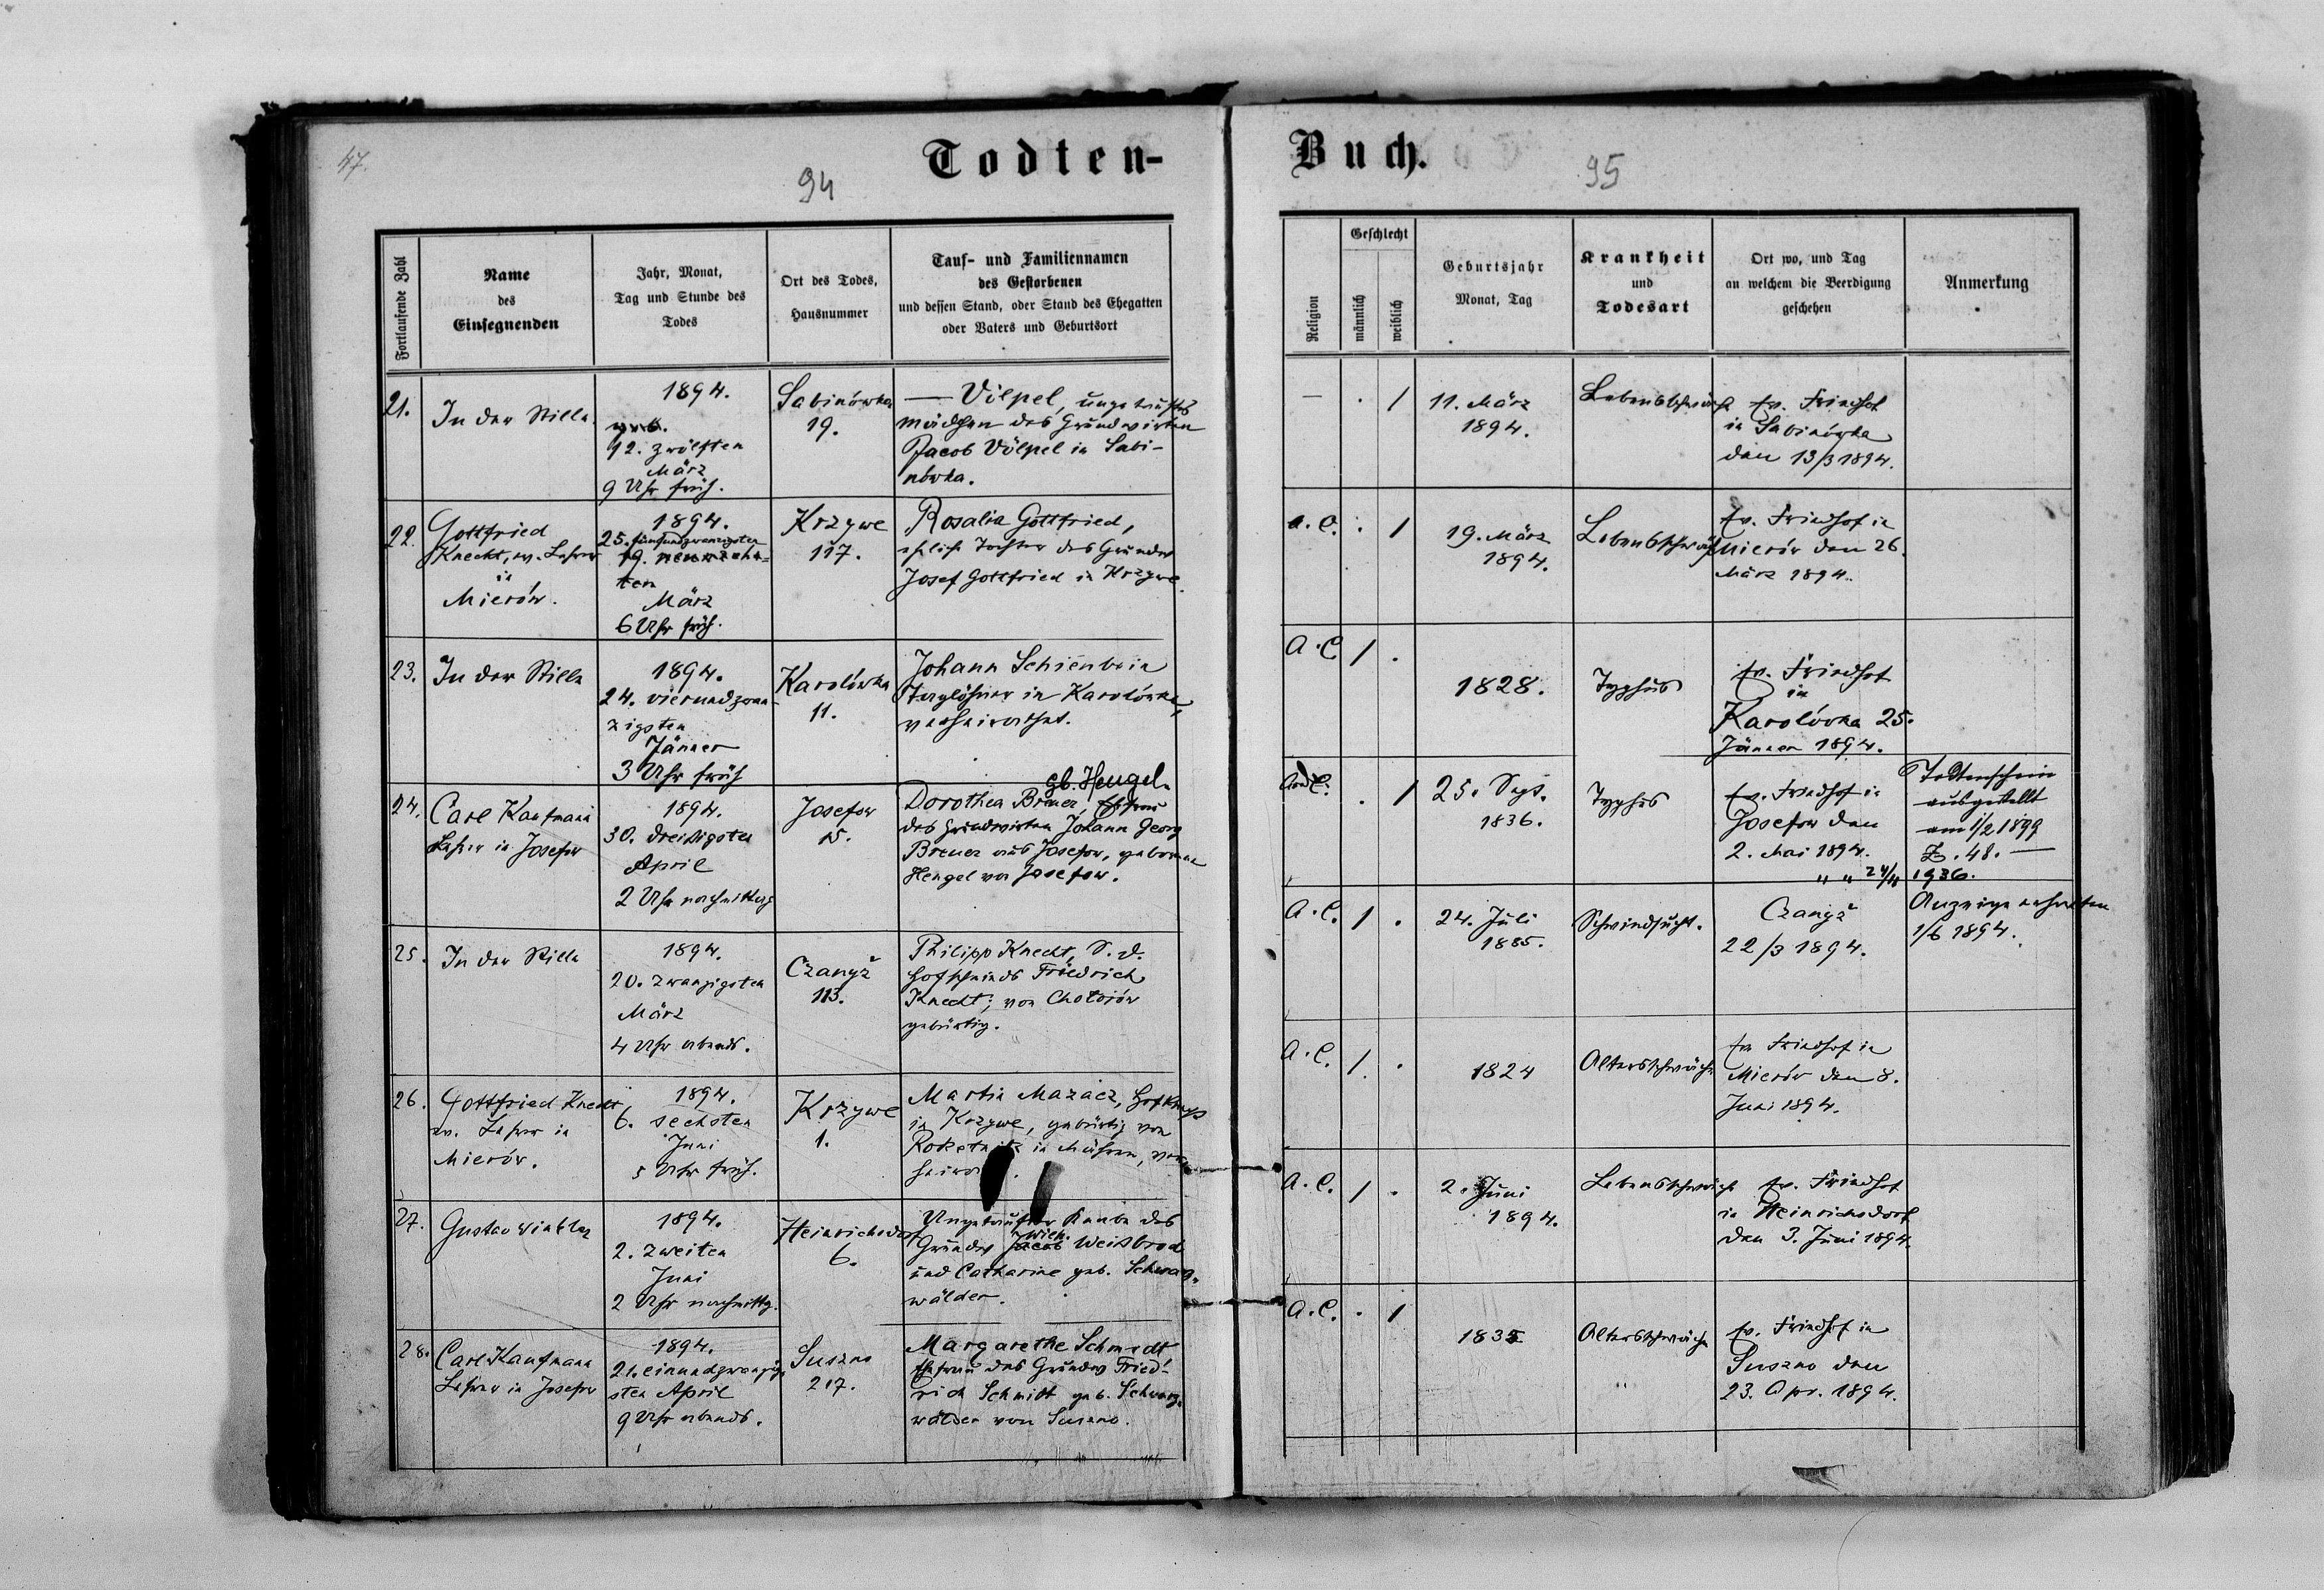 47.
94
Todten-
Buch.
95
Fortlaufende Zahl
Name
des
Einsegnenden
Jahr, Monat,
Tag und Stunde des
Todes
Ort des Todes,
Hausnummer
Tauf- und Familiennamen
des Gestorbenen
und dessen Stand, oder Stand des Ehegatten
oder Vaters und Geburtsort
Religion
Geschlecht
männlich
weiblich
Geburtsjahr
Monat, Tag
Krankheit
und
Todesart
Ort wo, und Tag
an welchem die Beerdigung
geschehen
Anmerkung
21.
In der Stille.
1894.
12. zwölften
März
9 Uhr früh.
Sabinówka
19.
— Völpel, ungetauftes
Mädchen des Grundwirten
Jacob Völpel in Sabi-
nówka.
— . /
11. März
1894.
Lebensschwäche
ev. Friedhof
in Sabinówka
den 13/3 1894.
22.
Gottfried
Knecht, ev. Lehrer
in
Mierów.
1894.
25. fünfundzwanzigsten
19. neunzehn-
ten
März
6 Uhr früh.
Krzywe
117.
Rosalia Gottfried,
ehliche Tochter des Grundw
Josef Gottfried in Krzywe.
A.C. . /
19. März
1894.
Lebensschwäche
ev. Friedhof in
Mierów den 26.
März 1894.
23.
In der Stille
1894.
24. vierundzwan-
zigsten
Jänner
3 Uhr früh
Karolówka
11.
Johann Schienbein
Taglöhner in Karolówka,
verheirathet.
A.C. / .
1828.
Typhus
ev. Friedhof
in
Karolówka 25.
Jänner 1894.
24.
Carl Kaufmann
Lehrer in Josefow
1894.
30. dreißigsten
April
2 Uhr nachmittag
Josefow
15.
gb. Hengel.
Dorothea Breuer, Ehefrau
des Grundwirten Johann Georg
Breuer aus Josefow, geborene
Hengel von Josefow.
. /
25. Sept.
1836.
Typhus
ev. Friedhof in
Josefow den
2. Mai 1894.
" " 24/11
Todtenschein
ausgestellt
am 1/2 1899
Z. 48. —
1936.
25.
In der Stille
1894.
20. zwanzigsten
März
4 Uhr abends.
Czanyż
113.
Philipp Knecht, S. d.
Hofschmieds Friedrich
Knecht; von Chołojów
gebürtig.
A.C. / .
24. Juli
1885.
Schwindsucht.
Czanyż
22/3 1894.
Anzeige erhalten
1/6 1894.
26.
Gottfried Knecht
ev. Lehrer in
Mierów.
1894.
6. sechsten
Juni
5 Uhr früh.
Krzywe
1.
Martin Mazacz,
in Krzywe, gebürtig von
in Mähren, ver-
A.C. / .
1824
Altersschwäche
ev Friedhof in
Mierów den 8.
Juni 1894.
27.
Gustav Winkler
1894.
2. zweiten
Juni
2 Uhr nachmittg.
Heinrichsdorf
6.
Ungetaufter Knabe des
Grundw Jacob Weißbrod
und Catharine geb. Schwarz-
wälder.
A.C. / .
2. Juni
1894.
Lebensschwäche
ev. Friedhof
in Heinrichsdorf
den 3. Juni 1894.
28.
Carl Kaufmann
Lehrer in Josefow
1894.
21. einundzwanzig-
sten April
9 Uhr abends.
Suszno
217.
Margarethe Schmidt
Ehefrau des Grundw Fried-
rich Schmidt geb. Schwarz-
wälder von Suszno.
A.C. . /
1835
Altersschwäche
ev. Friedhof in
Suszno den
23. Apr. 1894.